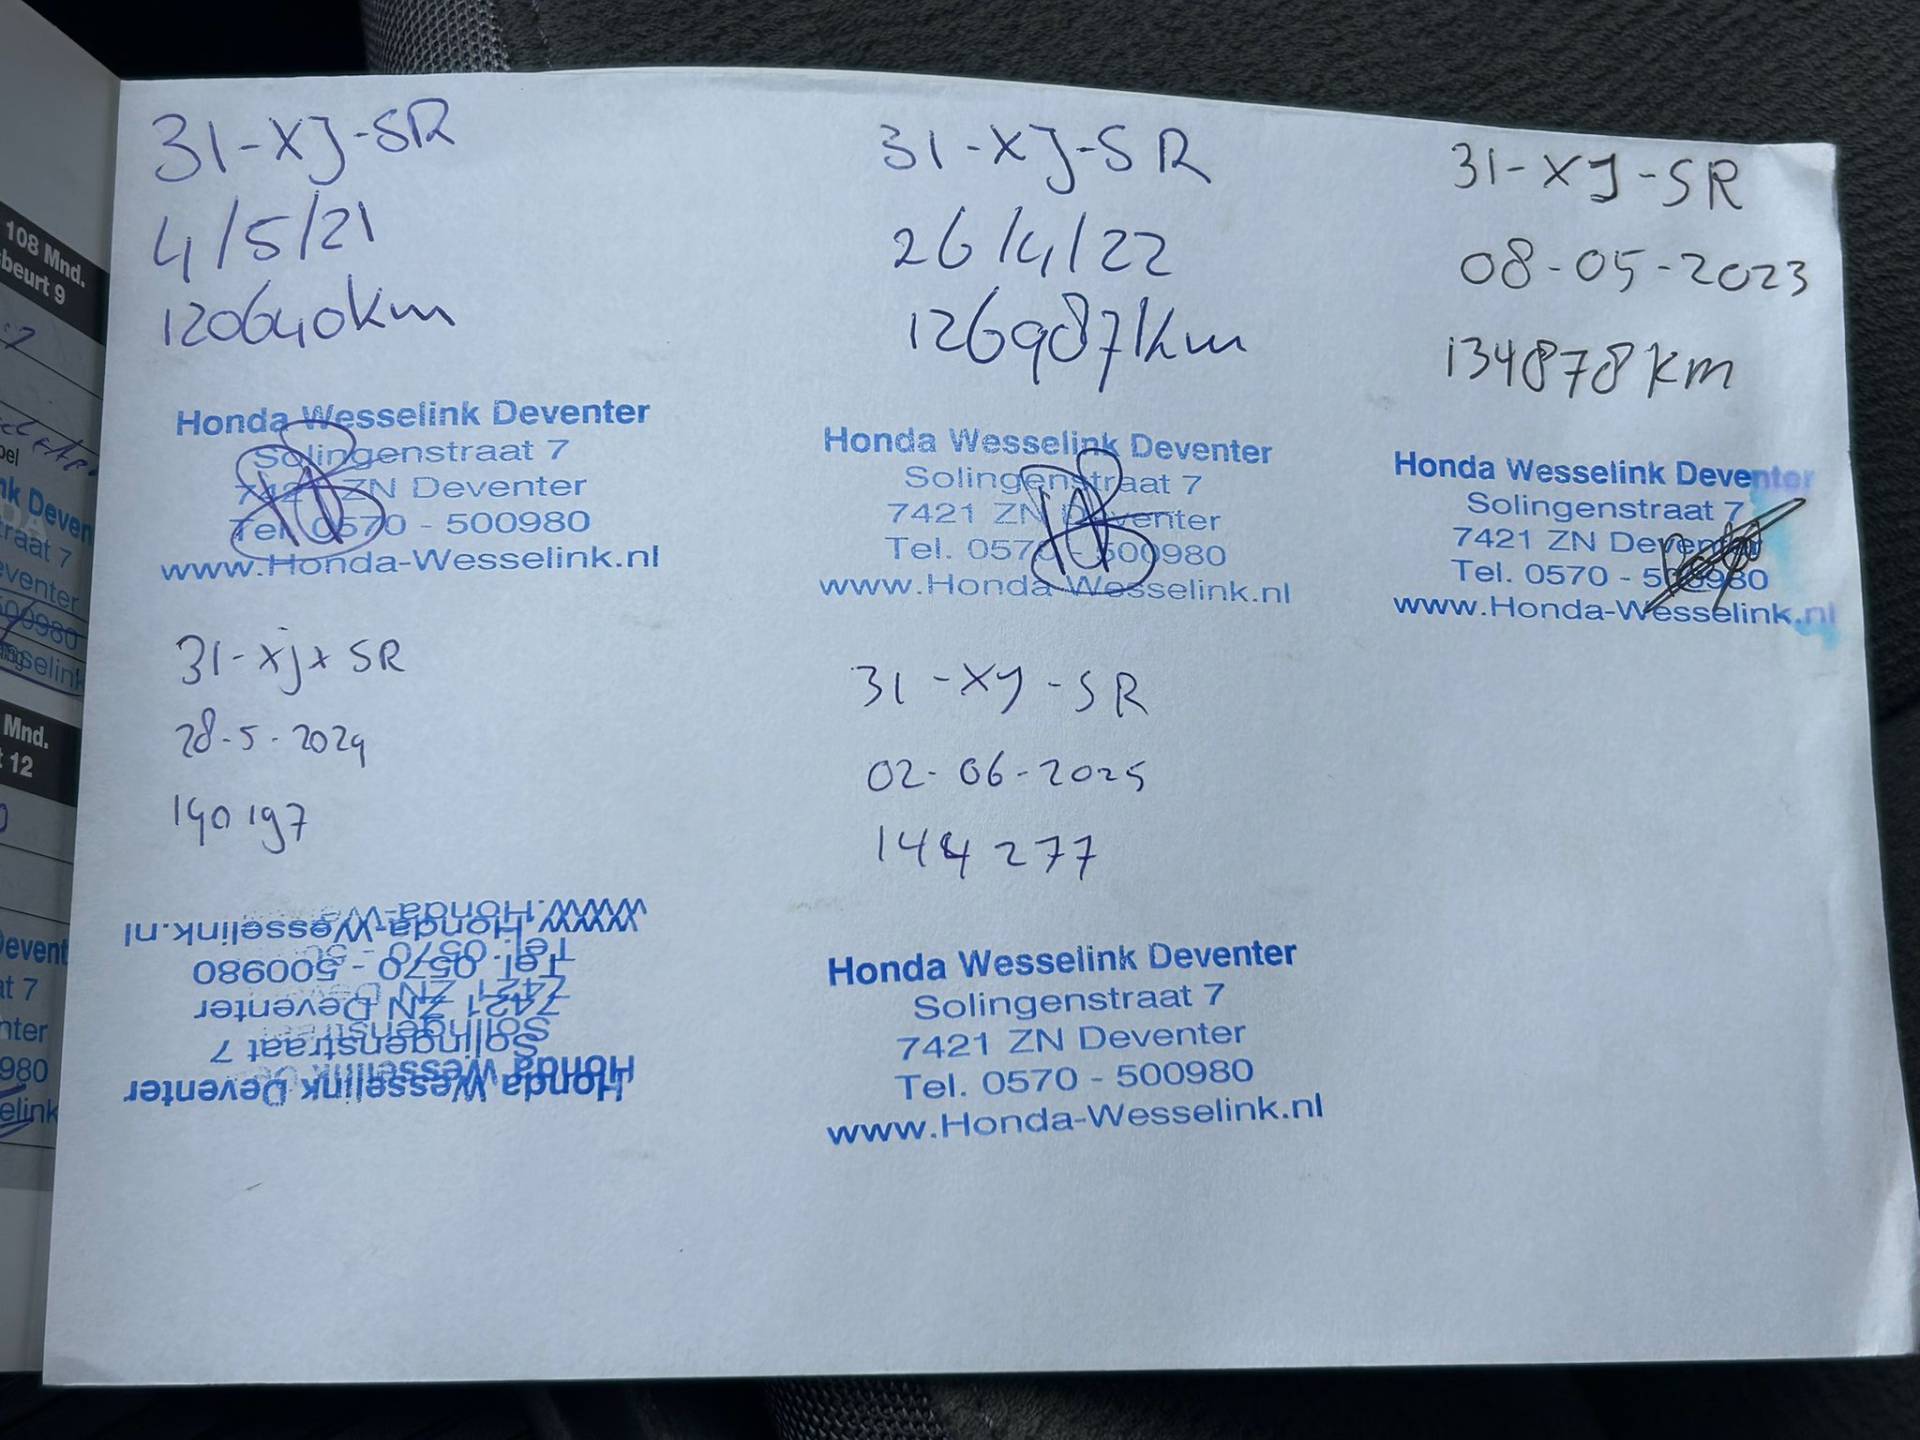 31-XJ-SR
4/5/21
120640km
Honda Wesselink Deventer
Solingenstraat 7
7421 ZN Deventer
Tel. 0570 - 500980
www.Honda-Wesselink.nl
31-XJ-SR
26/4/22
126987km
Honda Wesselink Deventer
Solingenstraat 7
7421 ZN Deventer
Tel. 0570 - 500980
www.Honda-Wesselink.nl
31-XJ-SR
08-05-2023
134878km
Honda Wesselink Deventer
Solingenstraat 7
7421 ZN Deventer
Tel. 0570 - 500980
www.Honda-Wesselink.nl
31-xjx SR
28-5-2024
140197
Honda Wesselink Deventer
Solingenstraat 7
7421 ZN Deventer
Tel. 0570 - 500980
www.Honda-Wesselink.nl
31-XJ-SR
02-06-2025
144277
Honda Wesselink Deventer
Solingenstraat 7
7421 ZN Deventer
Tel. 0570 - 500980
www.Honda-Wesselink.nl
108 Mnd.
beurt 9
Mnd.
12